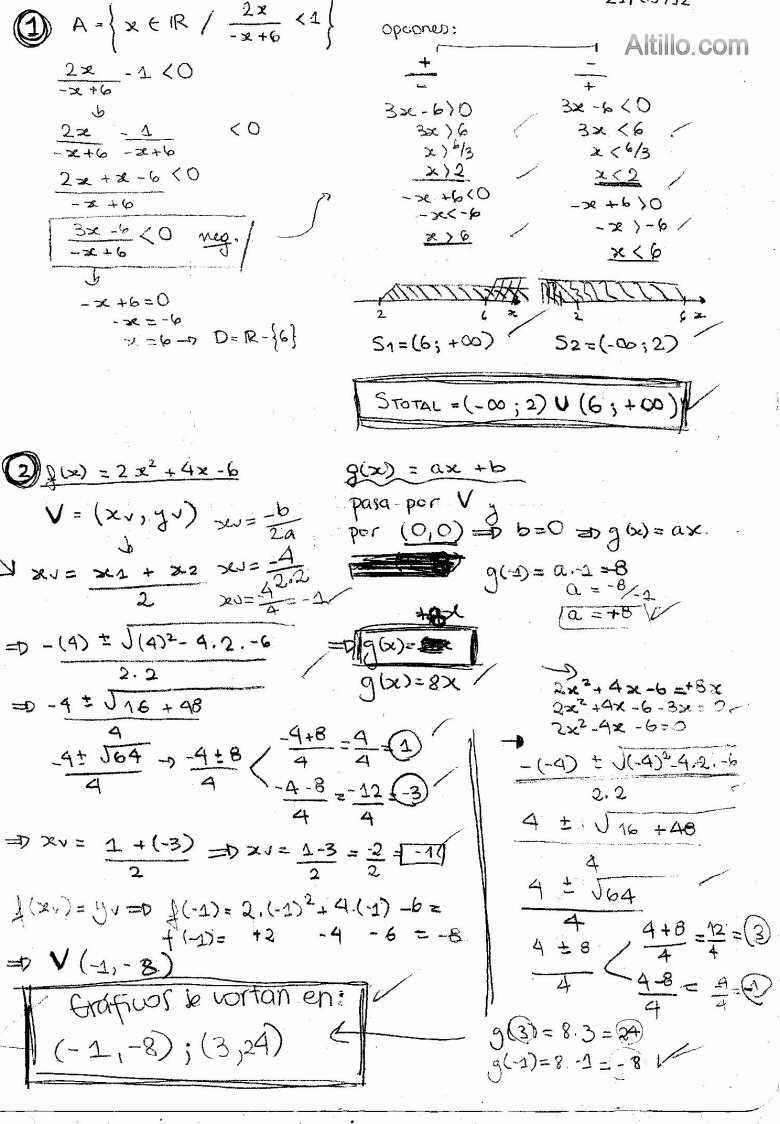 21/05/12
Altillo.com
① A = { x ∈ ℝ / 2x/(-x+6) < 1 }
2x/(-x+6) - 1 < 0
↓
2x/(-x+6) - 1/(-x+6) < 0
(2x + x - 6)/(-x+6) < 0
(3x - 6)/(-x+6) < 0 neg.
↓
-x + 6 = 0
-x = -6
x = 6 → D = ℝ - {6}
opciones:
+/-
3x - 6 > 0
3x > 6
x > 6/3
x > 2
-x + 6 < 0
-x < -6
x > 6
-/+
3x - 6 < 0
3x < 6
x < 6/3
x < 2
-x + 6 > 0
-x > -6
x < 6
2 6 x
2 6 x
S1 = (6 ; +∞) S2 = (-∞ ; 2)
STOTAL = (-∞ ; 2) U (6 ; +∞)
② f(x) = 2x² + 4x - 6
V = (xv, yv) xv = -b/2a
↓
xv = (x1 + x2)/2 xv = -4/2.2
xv = -4/4 = -1
⇒ (-(4) ± √((4)² - 4.2.-6))/2.2
⇒ (-4 ± √(16 + 48))/4
(-4 ± √64)/4 → (-4 ± 8)/4
(-4+8)/4 = 4/4 = 1
(-4-8)/4 = -12/4 = -3
⇒ xv = (1 + (-3))/2 ⇒ xv = (1-3)/2 = -2/2 = -1
f(xv) = yv ⇒ f(-1) = 2.(-1)² + 4.(-1) - 6 =
f(-1) = +2 -4 -6 = -8
⇒ V (-1, -8)
Gráficos se cortan en:
(-1, -8) ; (3, 24)
g(x) = ax + b
pasa por V y
por (0,0) ⇒ b=0 ⇒ g(x) = ax.
g(-1) = a.-1 = -8
a = -8/-1
a = +8
+8x
⇒ g(x) =
g(x) = 8x
→
2x² + 4x - 6 = +8x
2x² + 4x - 6 - 8x = 0
2x² - 4x - 6 = 0
→
(-(-4) ± √((-4)² - 4.2.-6))/2.2
(4 ± √(16 + 48))/4
(4 ± √64)/4
(4 ± 8)/4
(4+8)/4 = 12/4 = 3
(4-8)/4 = -4/4 = -1
g(3) = 8.3 = 24
g(-1) = 8.-1 = -8